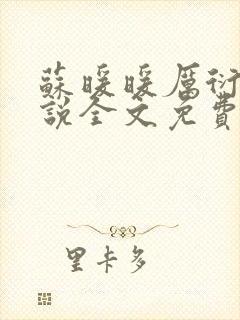 蘇暖暖厲衍
說全文免費
里卡多